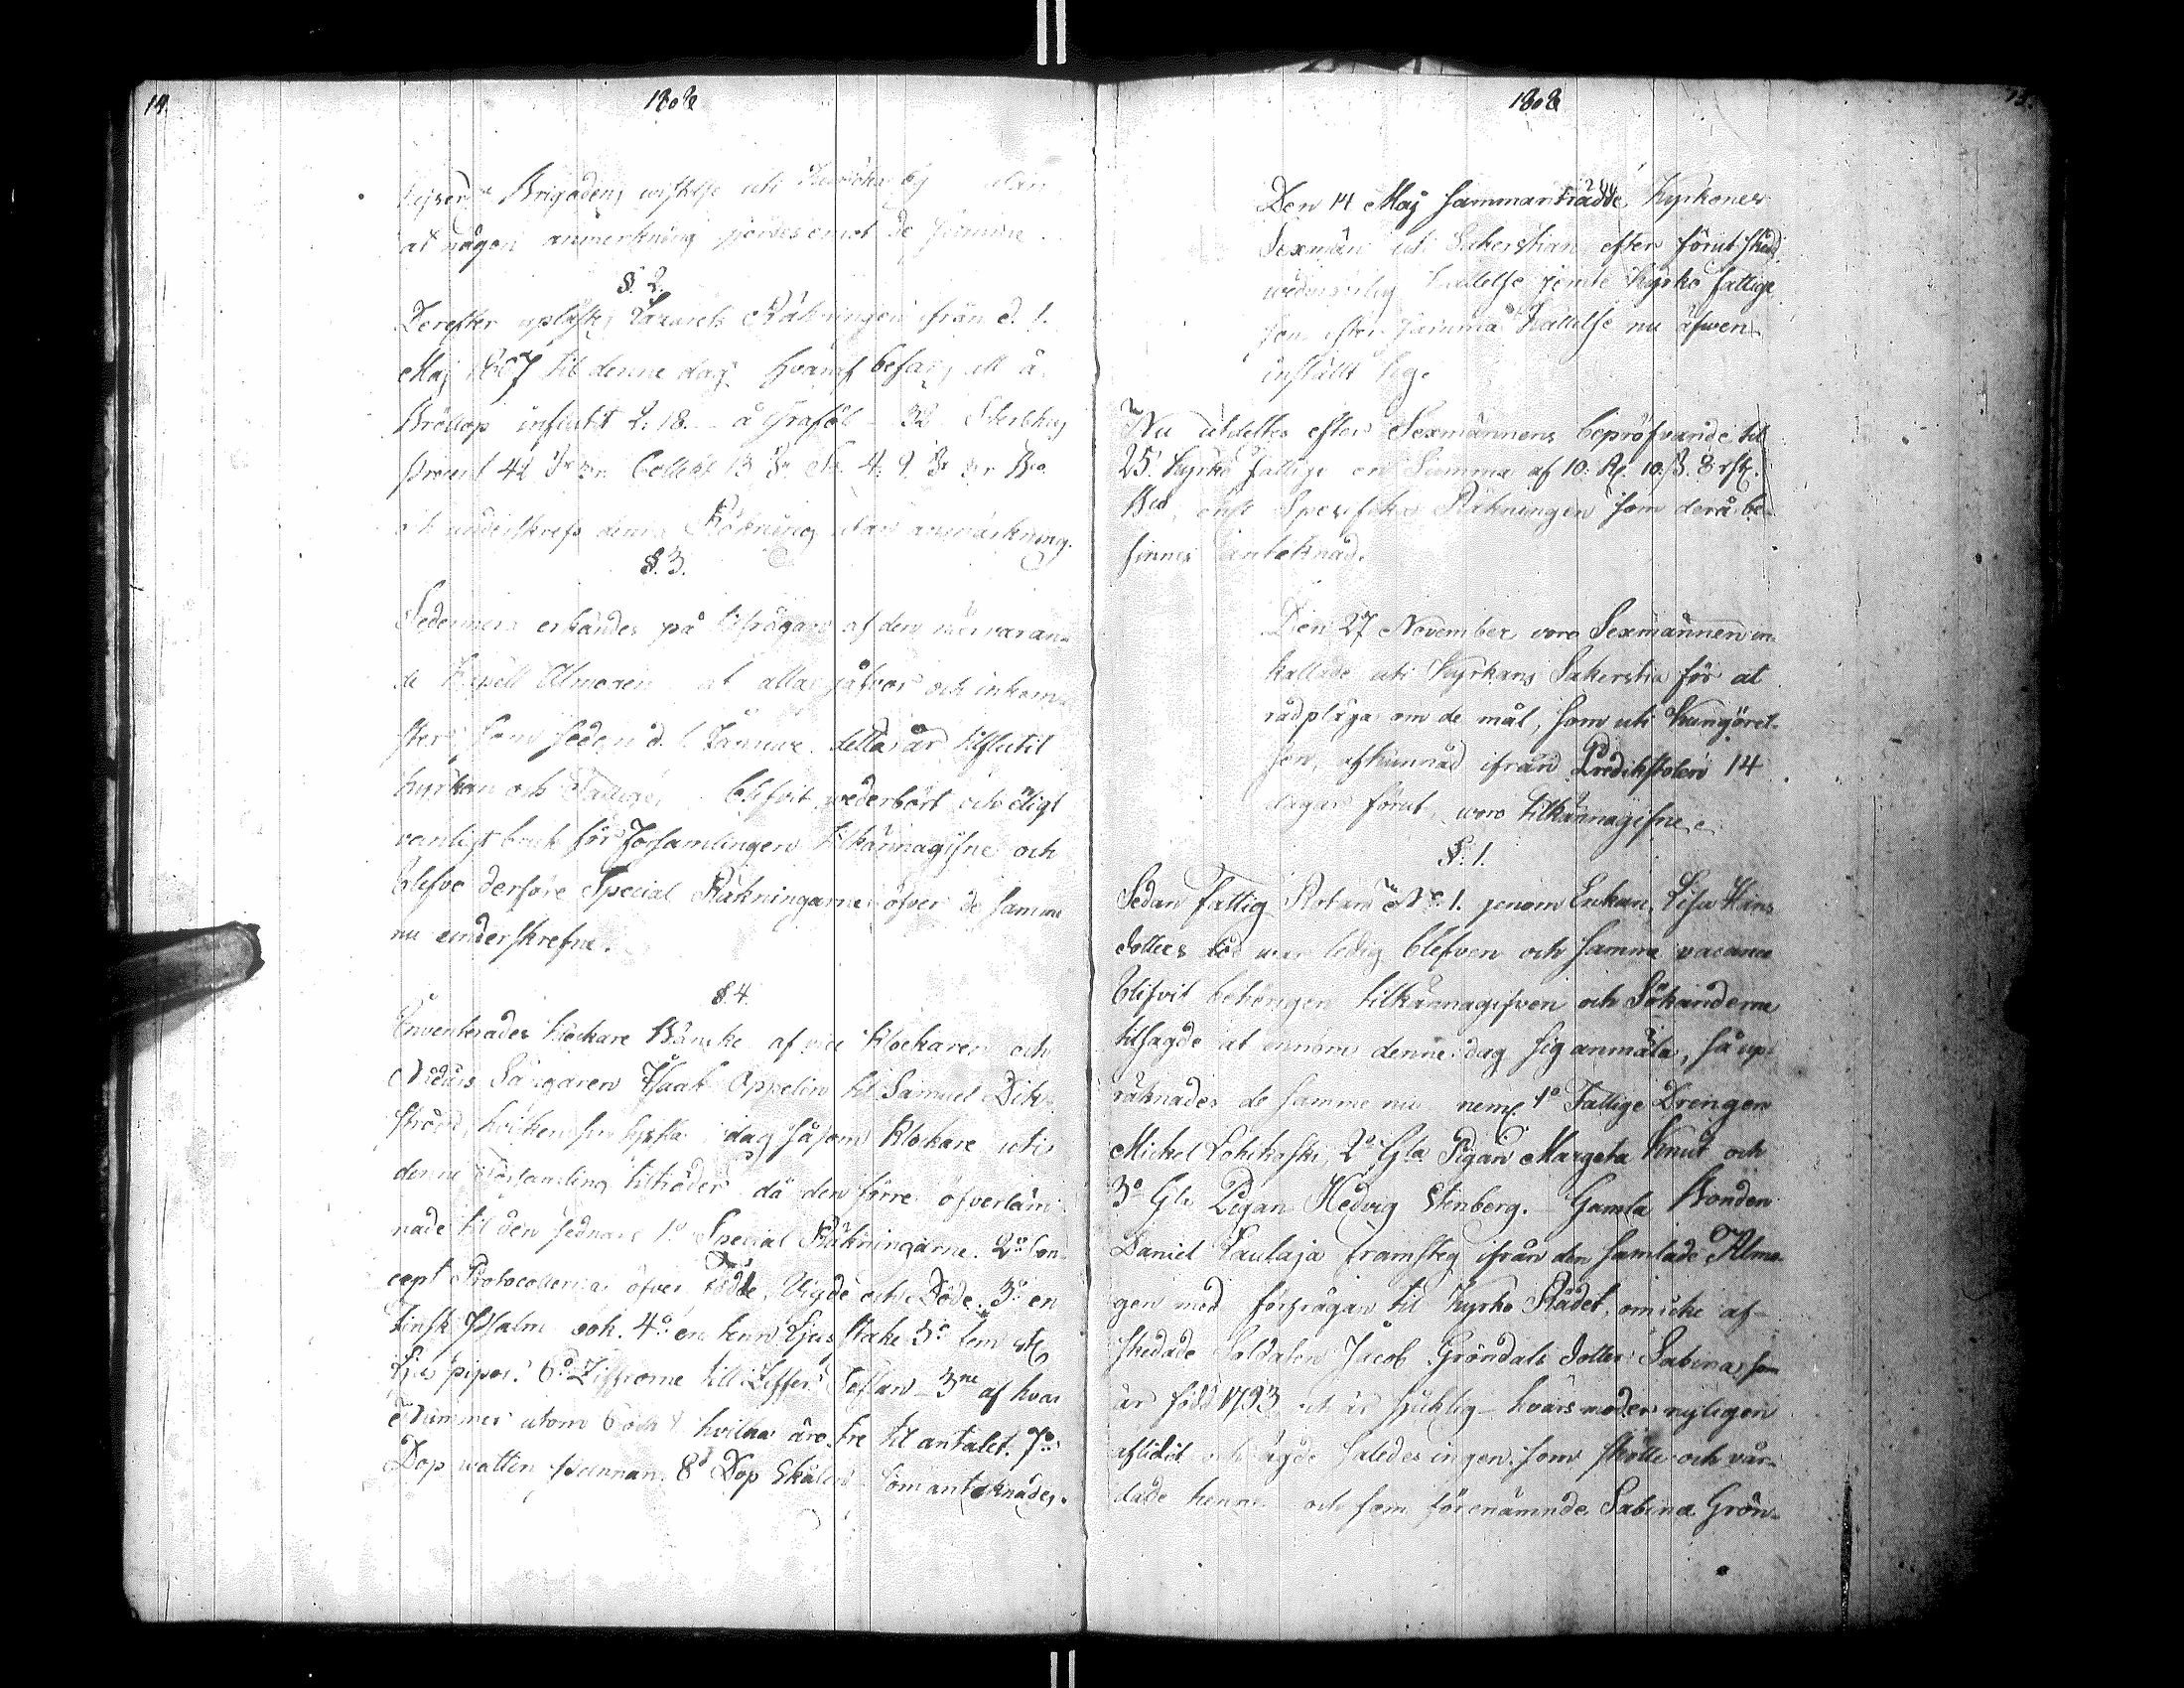 14.
1808
Brigadens uti by utan
at någon anmerkning gordes emot de samma.
§. 2.
Derefter uplästes Lazarets Räkningen ifrån d. 1.
Maj 1807 til denne dag hvaraf befans att å
Bröllop influtit 2. 18. å Graföl 32 Sterbhus
procent 42
underskrefs denna Räkning utan anmärkning.
§. 3.
Sedermera erkändes på tilfrågan af den närvaran-
de Capell Almogen at alla gåfvor och inkom-
ster som sedan d. 1 Januar. detta år tilflutit
kyrkan och Fattige, blifvit wederbört och
vanligt bruk för Församlingen tilkännagifne och
blefvo derföre Special Räkningarne öfver de samma
nu underskrefne.
§. 4.
Inventerades klockare af vice klockaren och
Isaac Appelin til Samuel Dik-
ström, hvilken dag såsom klockare uti
denne Församling tilträder då den förre öfverläm-
nade til den sednare 1o Special Räkningarne. 2o Con-
cept Protocollerna öfver Födde, Vigde och Döde. 3o en
Finsk Psalm bok. 4o en Ljus stake 5o fem st.
Ljus pipor. 6o Ziffrorne till Ziffer Taflan 3ne af hvar
Nummer utom 6 och hvilka äro fre til antalet. 7o
Dop wattu pannan. 8o Dop Skålen som antecknades.
1808
15.
Den 14 Maj sammanträdde Kyrkones
Sexmän uti Sakerstian efter förut skedd
wederbörlig Kallelse jemte Kyrko fattige
som efter samma Kallelse nu äfwen
instält sig.
Nu utdeltes efter Sexmännens bepröfvande til
25. Kyrko fattige en Summa af 10. Rd. 10. ß. 8 rst.
Bco enl. Specifika Räkningen som derå be-
finnes antecknad.
Den 27 November voro Sexmännen in-
kallade uti Kyrkans Sakerstia för at
rådpläga om de mål, som uti Kungörel-
sen, afkunnad ifrån Predikstolen 14
dagar förut, woro tilkännagifne.
§. 1.
Sedan fattig Rotan No 1. genom Enkan Lisa Hans
dotters död war ledig blefven och samma vacance
blifvit behörigen tilkännagifven och Sökanderne
tilsagde at innom denne dag sig anmäla, så up-
räknades de samme nu neml. 1o Fattige Drengen
Michel 2o Gla Pigan Margeta Knut och
3o Gla Pigan Hedvig Stenberg. Gamla Bonden
Daniel Laulaja framsteg ifrån den samlade Almo-
gen med förfrågan til Kyrko Rådet, om icke af-
skedade Soldaten Jacob Gröndals dotter Sabina som
är född 1793 och är sjuklig hvars moder nyligen
aflidit och ägde således ingen som skötte och vår-
dade henne och som förenämnde Sabina Grön-